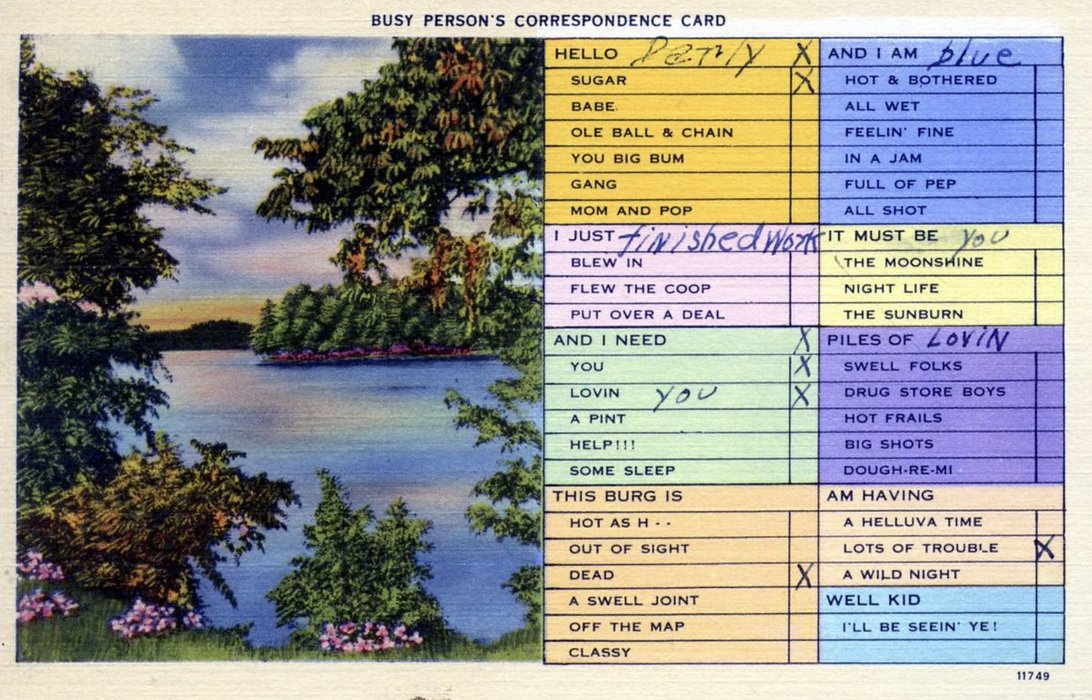 BUSY PERSON'S CORRESPONDENCE CARD
HELLO X
SUGAR X
BABE
OLE BALL & CHAIN
YOU BIG BUM
GANG
MOM AND POP
I JUST finished Work
BLEW IN
FLEW THE COOP
PUT OVER A DEAL
AND I NEED X
YOU X
LOVIN YOU X
A PINT
HELP!!!
SOME SLEEP
THIS BURG IS
HOT AS H - -
OUT OF SIGHT
DEAD X
A SWELL JOINT
OFF THE MAP
CLASSY
AND I AM blue
HOT & BOTHERED
ALL WET
FEELIN' FINE
IN A JAM
FULL OF PEP
ALL SHOT
IT MUST BE you
THE MOONSHINE
NIGHT LIFE
THE SUNBURN
PILES OF LOVIN
SWELL FOLKS
DRUG STORE BOYS
HOT FRAILS
BIG SHOTS
DOUGH-RE-MI
AM HAVING
A HELLUVA TIME
LOTS OF TROUBLE X
A WILD NIGHT
WELL KID
I'LL BE SEEIN' YE!
11749